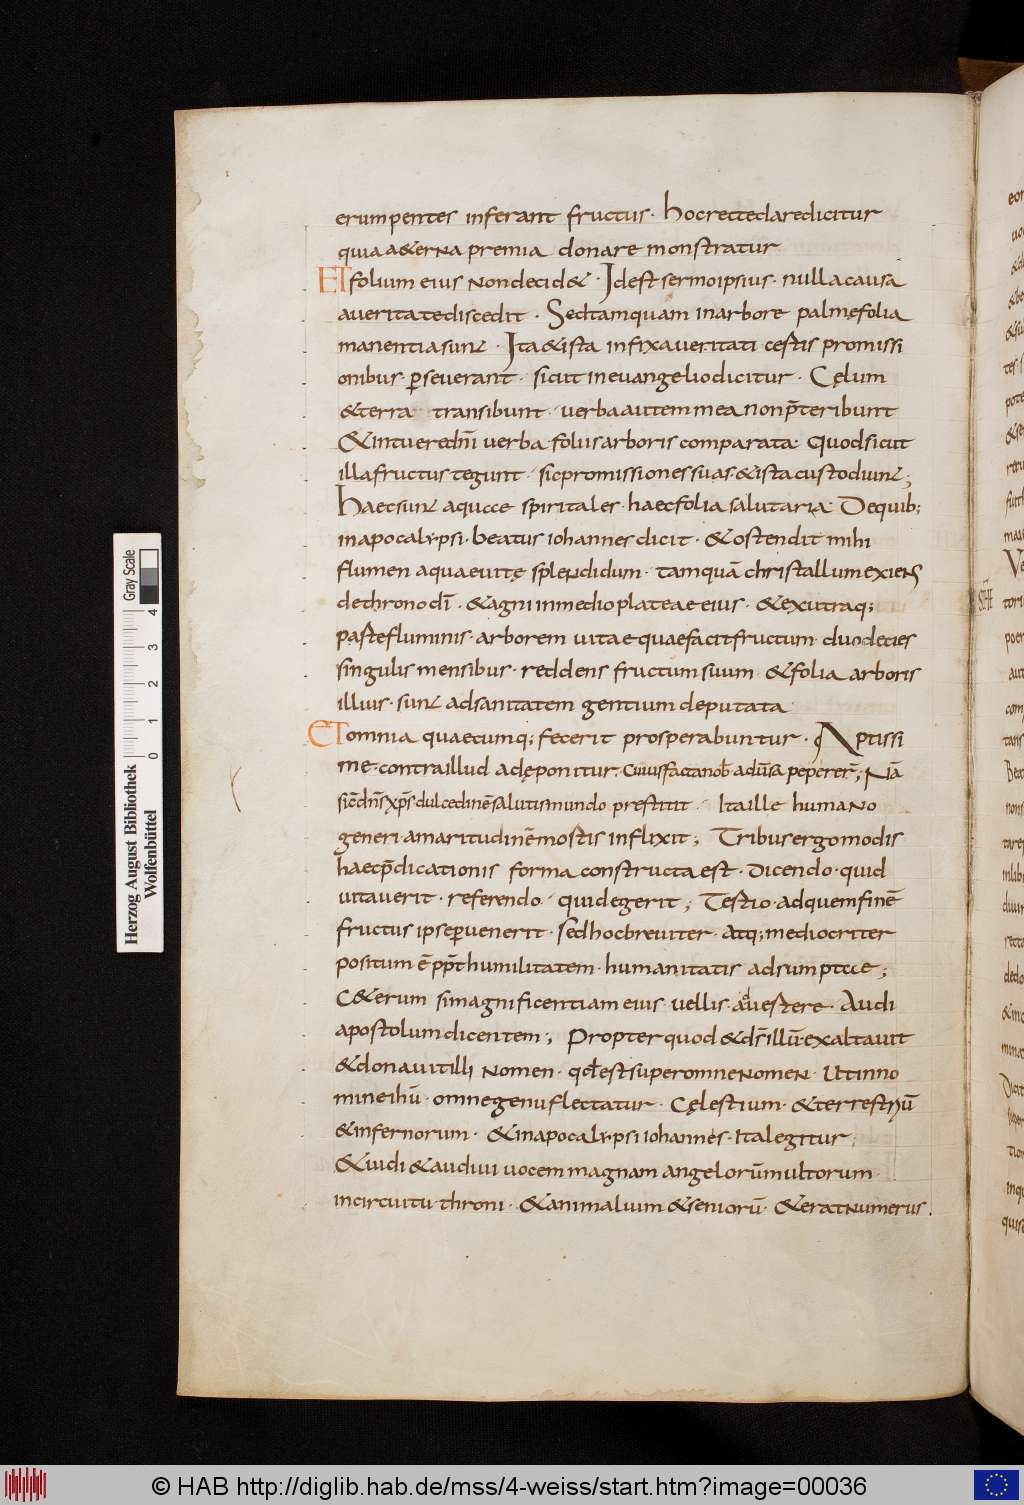 erumpentes inferant fructus. hocrecteclaredicitur
quia a&erna premia donare monstratur
ET folium eius nondecid&. Idest sermoipsius. nullacausa
averitatediscedit. Sedtamquam inarbore palmęfolia
manentiasunt. Ita&ista infixaveritati cęstis promissi
onibus. pseverant. sicut inevangeliodicitur. Cęlum
&terra transibunt. verbaautemmea nonp̄teribunt
&intueredn̄i verba foliisarboris comparata Quodsicut
illafructus tegunt. sicpromissionessuas.&istacustodiunt;
Haecsunt aquae spiritales. haecfolia salutaria. Dequib;
inapocalypsi. beatus iohannes dicit. &ostendit mihi
flumen aquaevitę splendidum. tamquā christallumexiens
dethronodī. &agni inmedioplateaeeius. &exutraq;
pastefluminis. arborem vitaequaefacitfructum duodecies
singulis mensibus. reddens fructumsuum. &folia arboris
illius. sunt adsanitatem gentium deputata
ET omnia quaecumq; fecerit prosperabuntur. Aptissi
me. contraillud adęponitur. Cuiusfactanob adūsa pepererr̄; Nā
sicdn̄sxp̄s dulcedinēsalutismundo prestitit. Itaille humano
generi. amaritudinēmostis inflixit; Tribusergomodis
haecp̄dicationis forma constructaest. Dicendo. quid
vitaverit. referendo. quidegerit; Testio. adquemfinē
fructus ipsepvenerit. Sedhocbreviter. Atq;mediocriter
positum ē pp̄t humilitatem. humanitatis adsumptae;
C&erum simagnificentiam eius vellis. advestere. Audi
apostolumdicentem; Propterquod &ds̄ illū.exaltavit
&donavitilli nomen. qdestsuperomnenomen. Utinno
mineihū. omnegenuflectatur. Cęlestium. &terrestriū
&infernorum. &inapocalypsi iohannes. Italegitur
&vidi &audivi vocem magnam angelorūmultorum
incircuitu. throni. &animalium &seniorū. &eratnumerus.
STE
Herzog August Bibliothek
Wolfenbüttel
0 1 2 3 4
Gray Scale
© HAB http://diglib.hab.de/mss/4-weiss/start.htm?image=00036